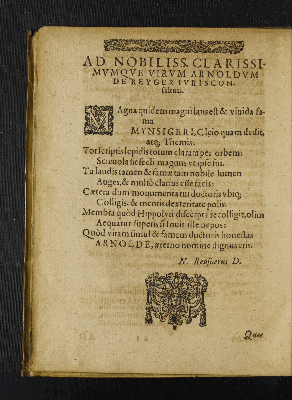 AD NOBILISS. CLARISSI-
MVMQVE VIRVM ARNOLDVM
DE REYGER IVRISCON-
sultum.
MAgna quidem magni laus est & viuida fa-
ma
MYNSIGERI, Clcio quam dedit,
atq; Themis.
Tot scriptis lepidis totum clarata per orbem:
Scæuola sic seclí magnus vt ipse fui.
Tu laudis tamen & famæ tam nobile lumen
Auges, & multò clarius esse facis:
Cætera dum monumenta tui doctoris vbiq;
Colligis, & mentis dexteritate polis.
Membra quòd Hippolyti discerpta recolligit, olim
Aequatur superis si nepos:
Quòd vitam simul & famam doctoris honestas
ARNOLDE, æterno nomine dignus eris.
N. Reusnerus D.
Quæ